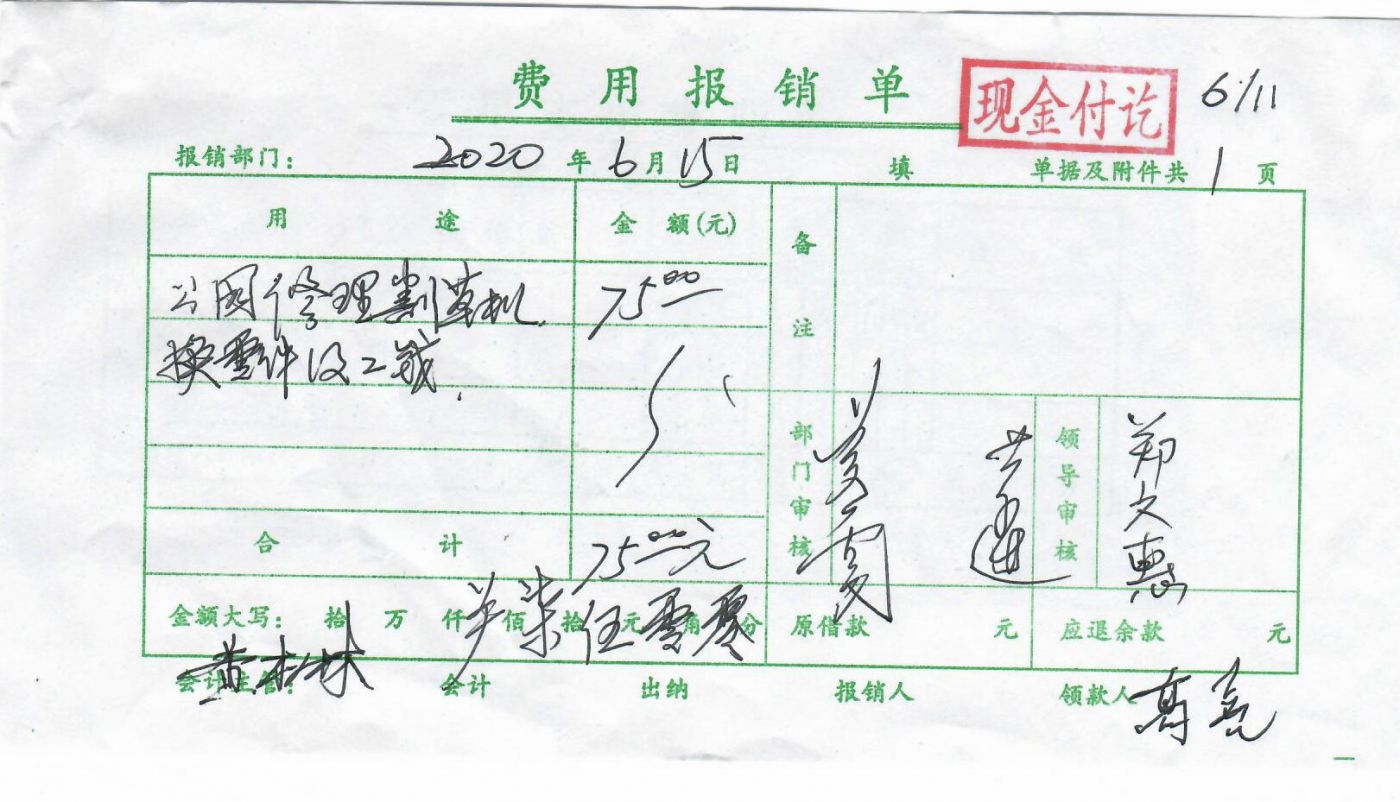 费用报销单
现金付讫
6/11
报销部门: 2020年6月15日 填 单据及附件共1页
用途 金额(元) 备注
公园修理割草机 75.00
换零件及工钱
部门审核 领导审核 郑文惠
合计 75.00元
金额大写: 拾万仟佰柒拾伍元零角零分 原借款 元 应退余款 元
会计主管: 黄松林 会计 出纳 报销人 领款人 高亮